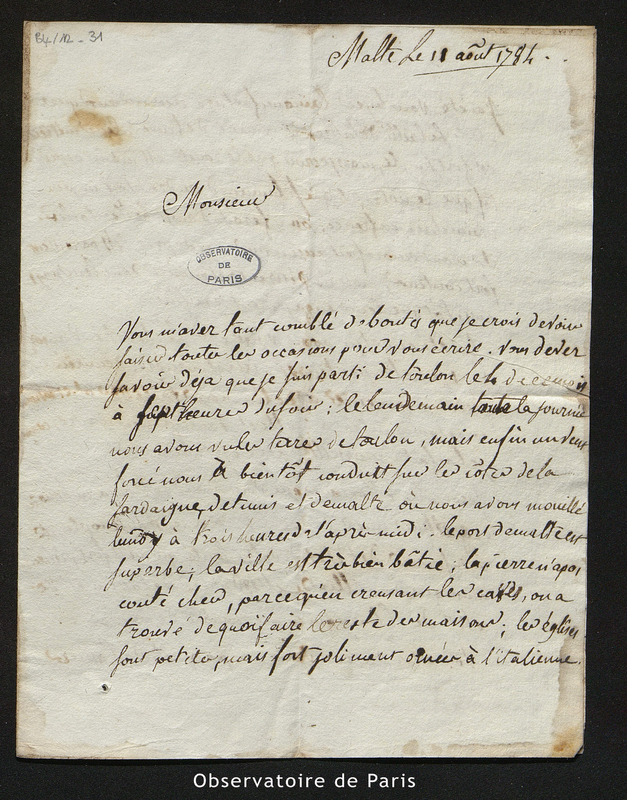 B4/12-31
Malte le 11 août 1784.
Monsieur
OBSERVATOIRE
DE
PARIS
Vous m'avez tant comblé de bontés que je crois devoir
saisir toutes les occasions pour vous écrire. vous devez
savoir déja que je suis parti de toulon le 4 de ce mois
à sept heures du soir; le lendemain toute la journée
nous avons vu les terres de toulon, mais enfin un vent
forcé nous a bientôt conduit sur les côtes de la
sardaigne, de tunis et de malte où nous avons mouillé
lundy à trois heures de l'après midi. le port de malte est
superbe; la ville est très bien bâtie; la pierre n'a pas
couté cher, parce qu'en creusant les caves, on a
trouvé de quoi faire le reste des maisons; les églises
sont petites, mais fort joliment ornées à l'italienne.
Observatoire de Paris